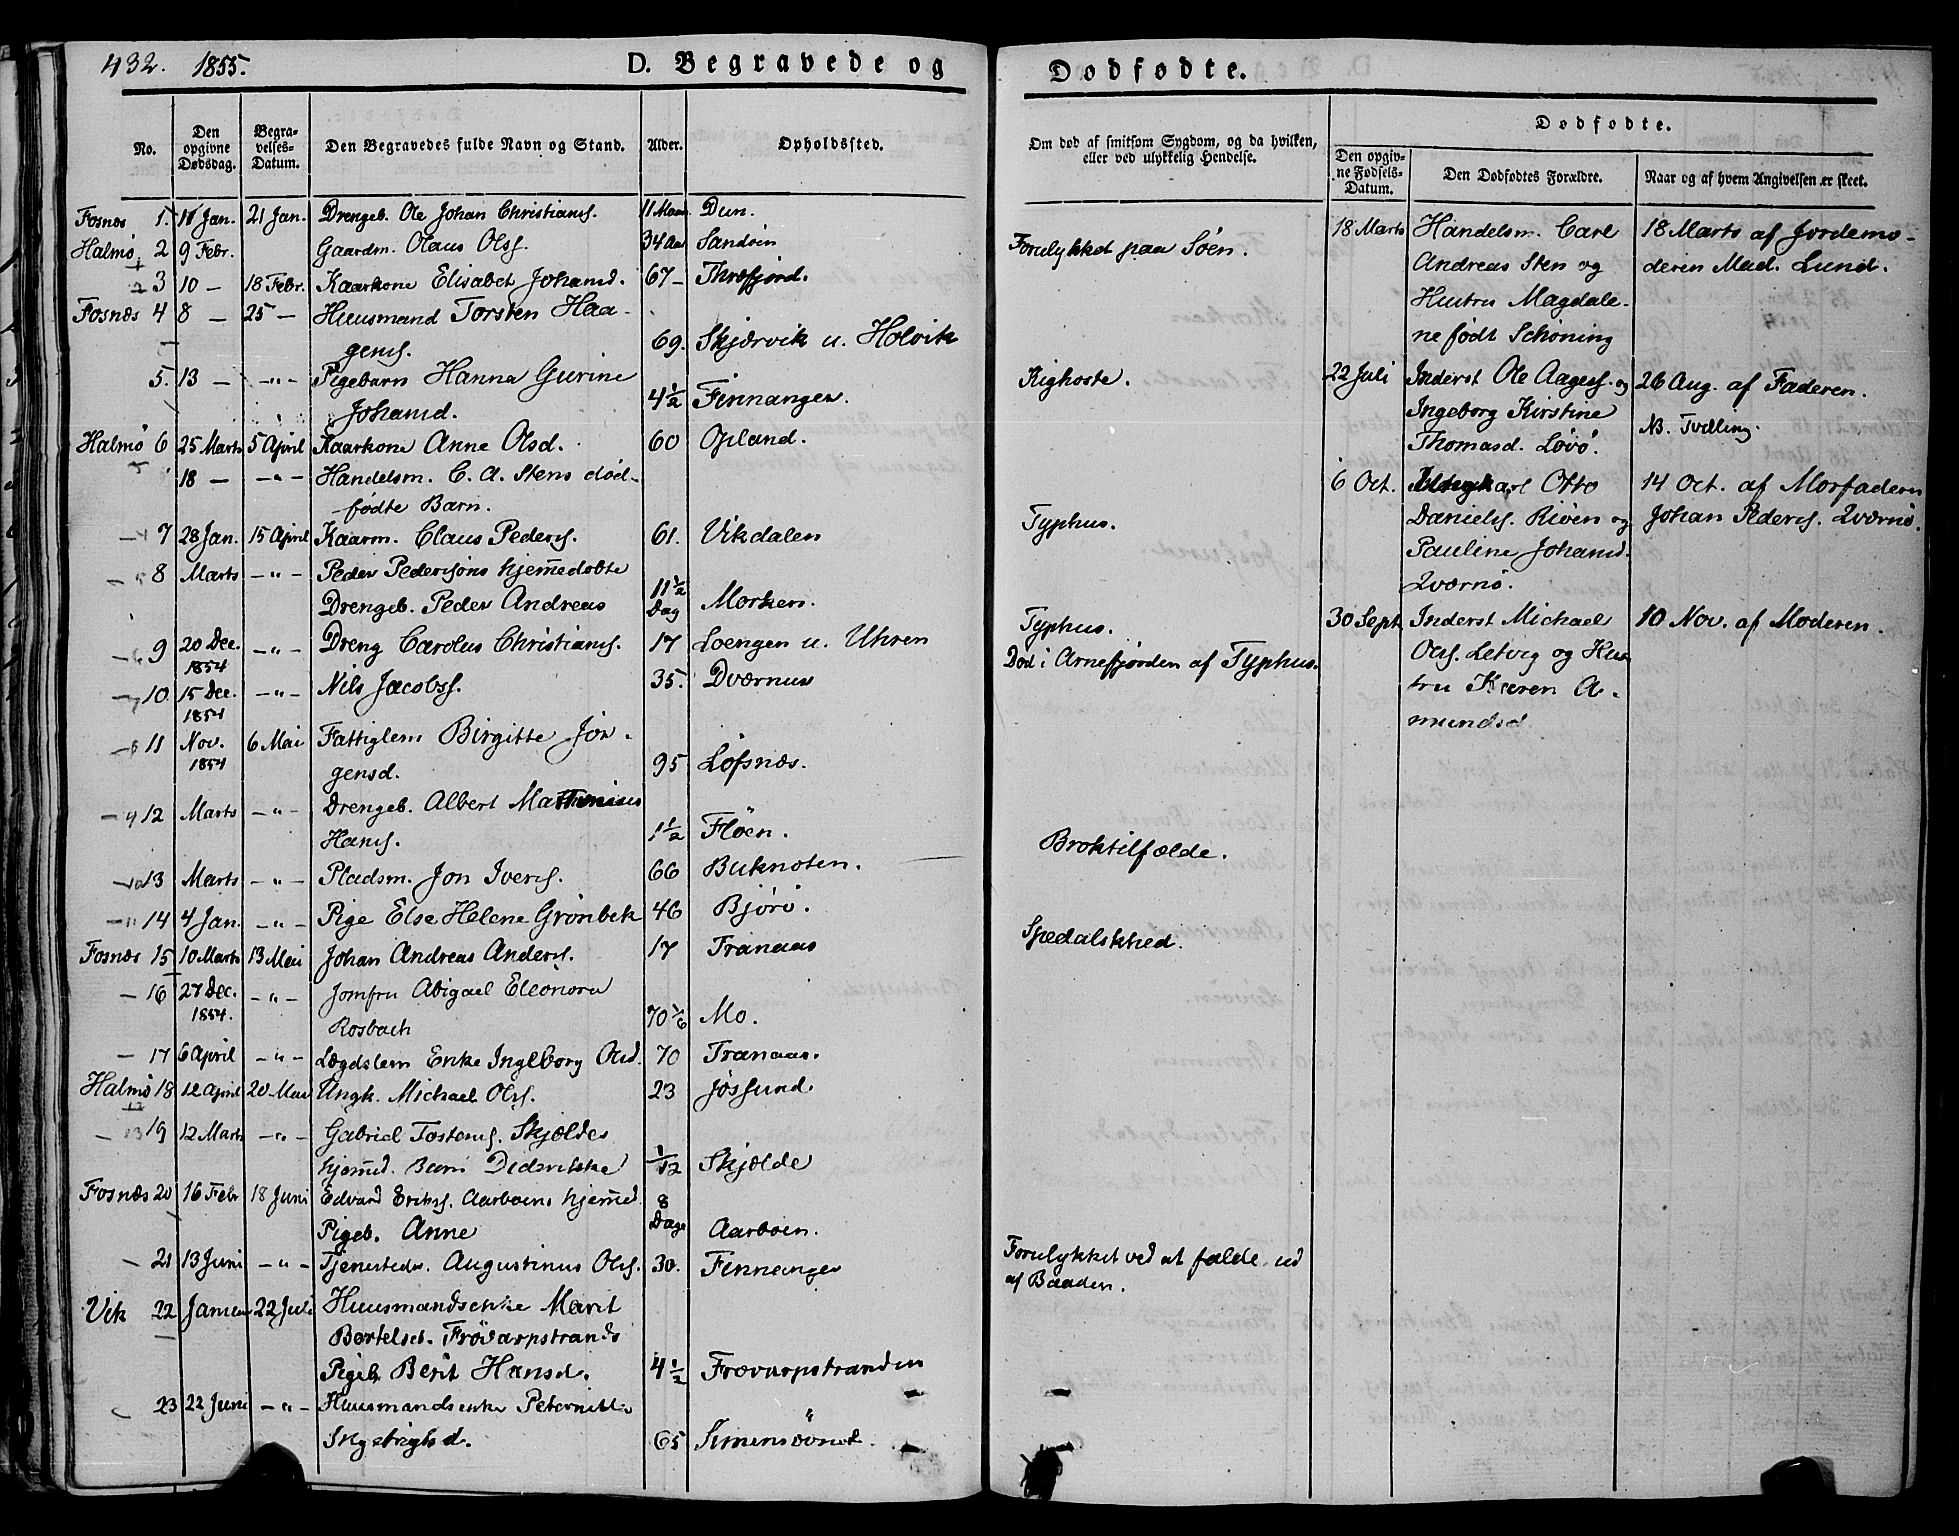 432. 1855.
D. Begravede og Dødfødte.
No. | Den opgivne Dødsdag. | Begravelses-Datum. | Den Begravedes fulde Navn og Stand. | Alder. | Opholdssted.
Fosnæs 1. 11 Jan. 21 Jan. Drengeb. Ole Johan Christians. 11 Maan. Dun.
Halmö 2 9 Febr. Gaardm. Olaus Ols. 34 Aar Sandöin
3 10 – 18 Febr. Kaarkone Elisabet Johansd. 67 – Thræfjord.
Fosnæs 4 8 – 25 – Huusmand Torsten Haa-
gens. 69. Skjærvik u. Holvik
5. 13 – –"– Pigebarn Hanna Gurine
Johansd. 4 1/2 Finnanger.
Halmö 6 25 Marts 5 April Kaarkone Anne Olsd. 60 Opland.
18 – –"– Handelsm. C. A. Stens död-
födte Barn.
7 28 Jan. 15 April Kaarm. Claus Peders. 61. Vikdalen
8 Marts –"– Peder Pedersöns hjemedöbte
Drengeb. Peder Andreas 11 1/2 Dag Morken.
9 20 Dec. 1854 –"– Dreng Carolus Christians. 17 Loengen u. Uhren
10. 15 Dec. 1854 –"– Nils Jacobs. 35. Dværnes
11 Nov. 1854 6 Mai Fattiglem Birgitte Jör-
gensd. 95 Löfsnæs.
12 Marts –"– Drengeb. Albert Mathenius
Hans. 1 1/2 Flöen.
13 Marts –"– Pladsm. Jon Ivers. 66 Buknoten.
14 4 Jan. –"– Pige Else Helene Grönbek 46 Björö.
Fosnæs 15 10 Marts 13 Mai Johan Andreas Anders. 17 Tranaas
16 27 Dec. 1854. –"– Jomfru Abigael Eleonora
Rosbach 70 1/6 Mo.
17 6 April –"– Lægdslem Enke Ingeborg Olsd. 70 Tranaas.
Halmö 18 12 April 20 Mai Ungk. Michael Ols. 23 Jössund
19 12 Marts –"– Gabriel Tostens. Skjældes
hjemed. Barn Diderikke 1/12 Skjælde
Fosnæs 20 16 Febr 18 Juni Edvard Eriks. Aarboens hjemed.
Pigeb. Anne 8 Dage Aarboen.
21 13 Juni –"– Tjenestedr. Augustinus Ols. 30. Finnanger
Vik 22 Januar 22 Juli Huusmandsenke Marit
Bertelsd. Frövarpstrands
Pigeb. Berit Hansd. 4 1/2 Frovarpstranden
23 22 Juni –"– Huusmandsenke Peternille
65
Om død af smitsom Sygdom, og da hvilken, eller ved ulykkelig Hendelse.
Forulykket paa Söen.
Kighoste.
Typhus.
Typhus.
Död i Arnefjorden af Typhus.
Broktilfælde.
Spedalskhed.
Forulykket ved at falde ud
af Baaden.
Dødfødte.
Den opgivne Fødsels-Datum. | Den Dødfødtes Forældre. | Naar og af hvem Angivelsen er skeet.
18 Marts Handelsm. Carl 18 Marts af Jordemo-
Andreas Sten og deren Mad. Lund.
Hustru Magdale-
ne födt Schöning
22 Juli Inderst Ole Aages. og 26 Aug. af Faderen.
Ingeborg Kirstine NB. Tvilling.
Thomasd. Lövö.
6 Oct. Otto 14 Oct. af Morfaderen
Daniels. Riöen og Johan Peders. Qværnö.
Pauline Johansd.
Qværnö.
30 Sept. Inderst Michael 10 Nov. af Moderen.
Ols. Letvig og Hus-
tru Karen A-
mundsd.